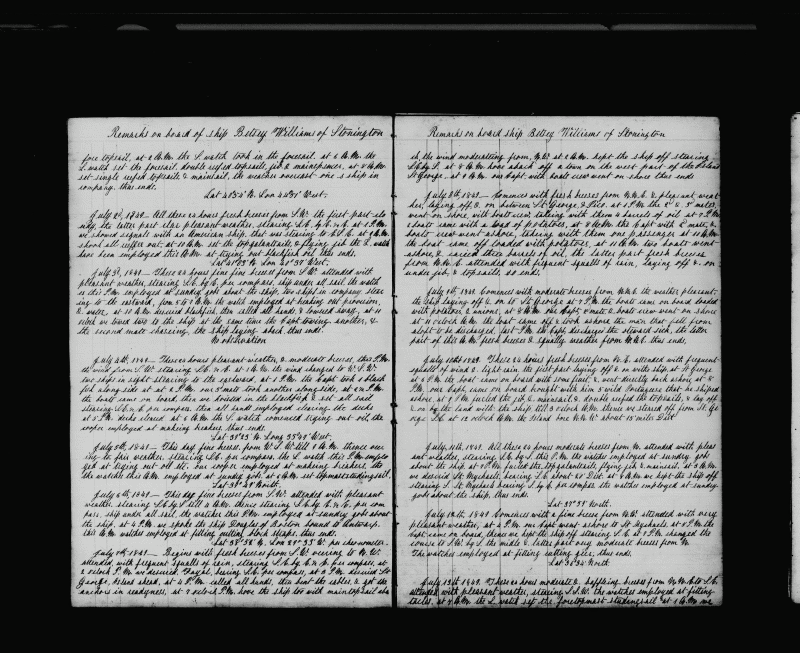 Remarks on board of ship Betsey Williams of Stonington
fore topsail, at 2 A.M. the L. watch took in the foresail. at 6 A.M. the
L. watch set the foresail, double reefed topsails, jib & mainspencer, at 8 A.M.
set single reefed topsails & mainsail, the weather overcast one ship in
company. thus ends.
July 2d, 1849. All these 24 hours fresh breezes from S.W. the first part clo
udy, the latter part clear pleasant weather, stearing
we showed signals with an American ship. that was stearing to
shook all reefes out. at 11 A.M. set the topgalantsails & flying jib the L. watch
have been employed this A.M. at trying out blackfish oil thus ends.
July 3d, 1849. These 24 hours fine breezes from S.W. attended with
pleasant weather, stearing S.E. by E. per compass, ship under all sail. the watch
es this P.M. employed at sundry jobs about the ship, two ships in company stear
ing to the eastward, from the watch employed at breaking out provision,
& water, at 10 A.M. descried blackfish, then called all hands, & lowered away, at 11
oclock we towed two to the ship at the same time the Capt towing another, &
the second mate chasing, the ship laying aback thus ends.
No observation
July 4th, 1849. These 24 hours pleasant weather, & moderate breezes, this P.M.
the wind from S.W. stearing at 1 A.M. the wind changed to
two ships in sight stearing to the eastward, at 1 P.M. the Capt. took a black
fish along side at at 2 P.M. our 3d mate took another along side, at 4 P.M.
the boats came on board, then we hoisted in the blackfish & set all sail
stearing per compass. then all hands employed clearing the decks
at 5 P.M. decks cleared at 6 A.M. the L. watch comenced trying out oil the
cooper employed at making breakers thus ends.
July 5th, 1849. This day fine breezes from till 4 A.M. thence over
ing to fair weather, stearing per compass, the L. watch this P.M. emplo
yed at trying out oil &c. our cooper employed at making breakers, the
the watches this A.M. employed at sundry jobs at 6 A.M. set topmaststudingsail.
July 6th, 1849. This day fine breezes from S.W. attended with pleasant
weather, stearing till 4 A.M. thence stearing per com
pass, ship under all sail, the watches this P.M. employed at sundry jobs about
the ship, at 4 P.M. we spoke the ship Douglas of Boston bound to Antwerp.
this A.M. watches employed at fitting cutting block straps, thus ends.
July 7th, 1849. Begins with fresh breezes from S.W. veering to N.W.
attended, with frequent squalls of rain, stearing per compass, at
2 oclock P.M. we descried Fayal, bearing per compass, at 3 P.M. descried St
George, Island ahead, at 4 P.M. called all hands, then bent the cables, & got the
anchors in readyness, at 7 oclock P.M. hove the ship too with maintopsail aba
Remarks on board ship Betsey Williams of Stonington
ck, the wind moderating from, N.W. at 2 A.M. kept the ship off stearing
at 4 A.M. hove aback off a town on the west part of the Island
St George, at 6 A.M. our Capt, with boats crew went on shore thus ends
July 8th, 1849. Comences with fresh breezes from & pleasant weat
her, laying off & on between St George, & Pico. at 1 P.M. the 2d & 3d mates
went on shore, with boats crew, taking with them 4 barrels of oil at 7 P.M.
a boat came with a load of potatoes, at 8 A.M. the Capt with 2d mate, &
boats crew went ashore, taking with them one passenger at 10 A.M.
the boat came off loaded with potatoes, at 11 A.M. two boats went
ashore, & carried three barrels of oil, the latter part fresh breeses
from attended with frequent squalls of rain, laying off & on
under jib, & topsails, so ends.
July 9th, 1849. Comences with moderate breezes from the weather pleasant
the ship laying off & on to St George at 7 P.M. the boats came on board loaded
with potatoes, & onions, at 8 A.M. our Capt & mate & boats crew went on shore
at 11 oclock A.M. the boat came off & took ashore the man that fell from
aloft to be discharged, last P.M. the Capt discharged the steward sick, the latter
part of this A.M. fresh breezes & squally weather from thus ends.
July 10th 1849. These 24 hours fresh breezes from attended with frequent
squalls of wind & light rain, the first part laying off & on with ship at St George
at 2 P.M. the boat came on board with stone fruit, & went directly back ashore at 5
P.M. our Capt came on board brought with him 5 with Portuguese that he shiped
ashore at 7 P.M. furled the jib & mainsail & double reefed the topsails, & lay off
& on by the land with the ship. till 3 oclock A.M. thence we steared off from St. Ge
orge at 12 oclock A.M. the Island bore about 15 miles Dist.
July 11th, 1849. All these 24 hours moderate breezes from N. attended with pleas
ant weather, stearing this P.M. the watches employed at sundry jobs
about the ship at 7 P.M. furled the topgalantsails, flying jib & mainsail. at 3 A.M.
we descried St. Mychaels, bearing about 25 Dist. at 6 A.M. we kept the ship off
stearing S. St. Mychaels bearing per compass the watches employed at sundry
jobs about the ship, thus ends.
July 12th, 1849. Comences with a fine breeze from attended with very
pleasant weather, at 4 P.M. our Capt went ashore to St Mychaels. at 7 P.M. the
Capt. came on board, thence we kept the ship off stearing at 8 P.M. changed the
course to the middle & latter part very moderate breezes from N.
The watches employed at fitting cutting geer, thus ends.
July 13th 1849. These 24 hours moderate & baffling breezes from
attended with pleasant weather, stearing the watches employed at fitting
the L. watch set the foretopmast studingsail at